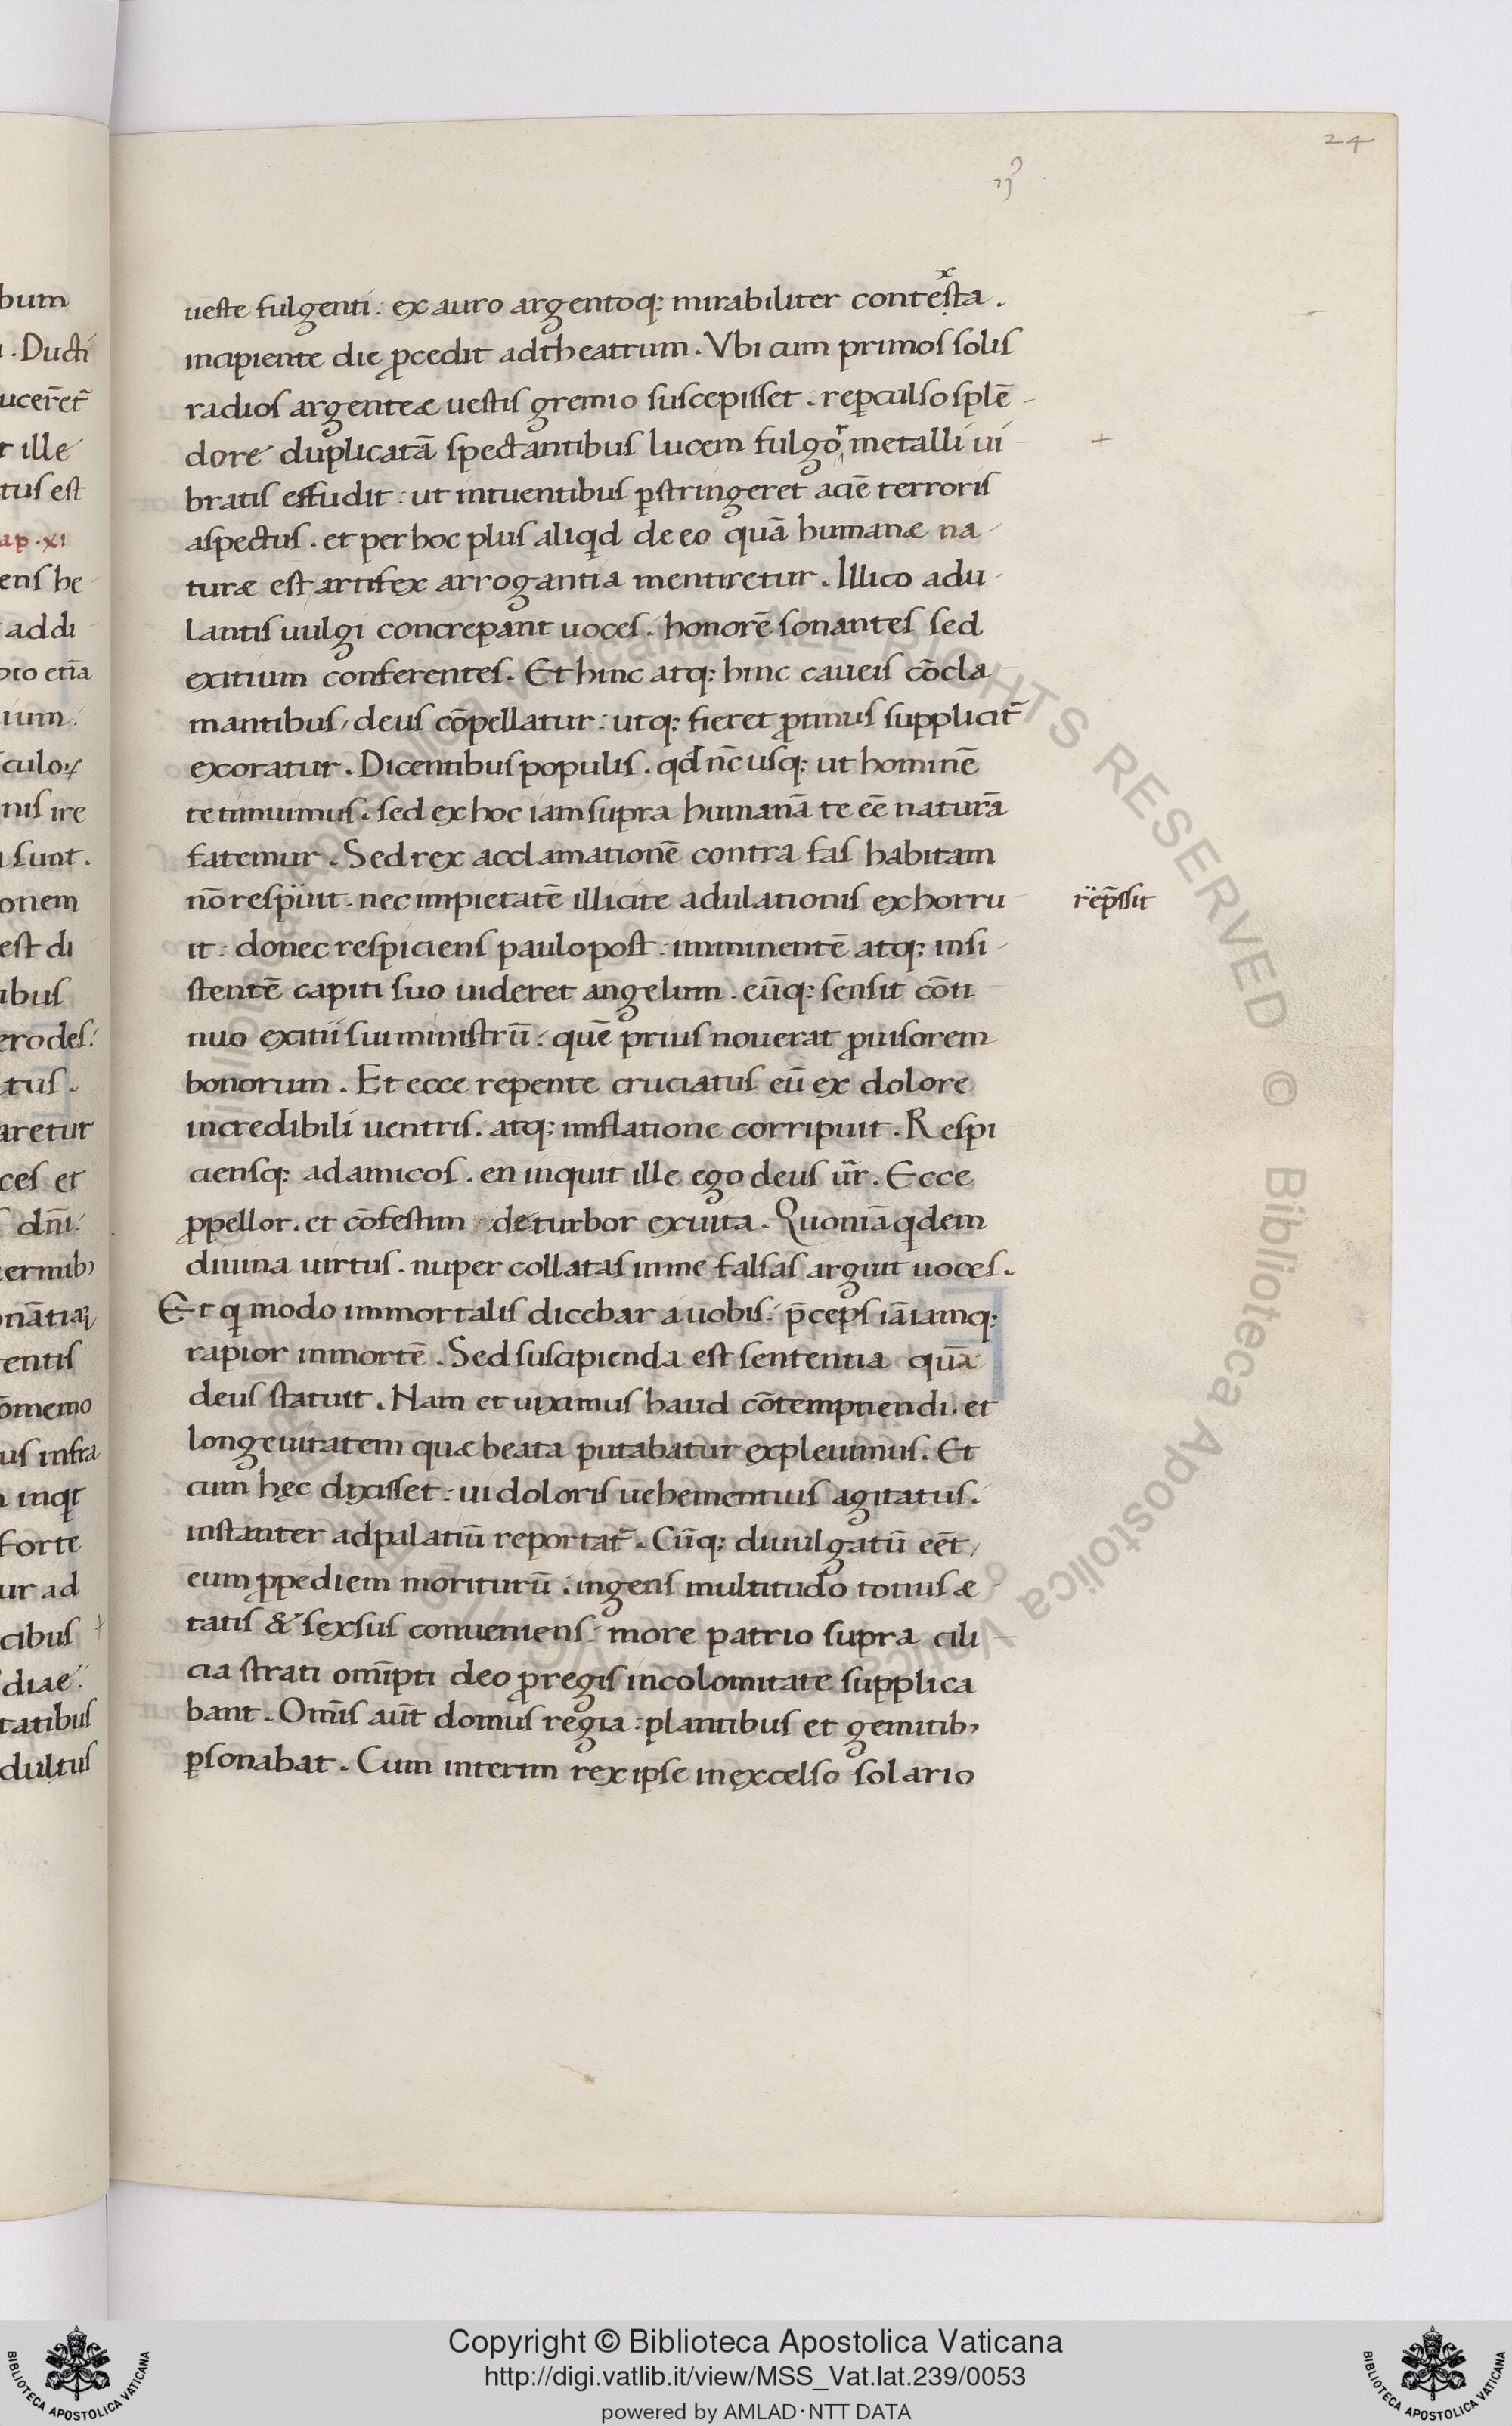 24
ueste fulgenti. ex auro argentoq; mirabiliter contesta.
x
incipiente die ꝓcedit ad theatrum. Vbi cum primos solis
radios argenteæ uestis gremio suscepisset. reꝑculso splē
dore duplicatā spectantibus lucem fulgor metalli ui
bratis effudit. ut intuentibus ꝑstringeret aciē terroris
aspectus. et per hoc plus aliqd de eo quā humanæ na
turæ est artifex arrogantia mentiretur. Illico adu
lantis uulgi concrepant uoces. honorē sonantes sed
exitium conferentes. Et hinc atq; hinc caueis cōcla
mantibus, deus cōpellatur. utq; fieret ꝓtinus suppliciť
excoratur. Dicentibus populis. qđ nc̄ usq; ut hominē
te timuimus. sed ex hoc iam supra humanā te eē naturā
fatemur. Sed rex acclamationē contra fas habitam
nō respüit. nec impietatē illicite adulationis exhorru
rëp̄ssit
it. donec respiciens paulo post. imminentē atq; insi
stentē capiti suo uideret angelum. eūq; sensit cōti
nuo exitii sui ministrū. quē prius nouerat ꝓuisorem
bonorum. Et ecce repente cruciatus eū ex dolore
incredibili uentris. atq; inflatione corripuit. Respi
ciensq; ad amicos. en inquit ille ego deus ūr. Ecce
ꝓpellor. et cōfestim deturbor ex uita. Quoniā qdem
diuina uirtus. nuper collatas in me falsas arguit uoces.
Et q modo immortalis dicebar a uobis. p̄ceps iā iamq;
rapior in mortē. Sed suscipienda est sententia quā
deus statuit. Nam et uiximus haud cōtempnendi. et
longeuitatem quæ beata putabatur expleuimus. Et
cum hęc dixisset. ui doloris uehementius agitatus.
instanter ad palatiū reportať. Cūq; diuulgatū eēt,
eum ꝓpediem moriturū. ingens multitudo totius æ
tatis & sexsus conueniens. more patrio supra cili
cia strati omīpti deo ꝓ regis incolomitate supplica
bant. Omīs aūt domus regia. plantibus et gemitibꝫ
ꝑsonabat. Cum interim rex ipse in excelso solario
Copyright © Biblioteca Apostolica Vaticana
http://digi.vatlib.it/view/MSS_Vat.lat.239/0053
powered by AMLAD·NTT DATA